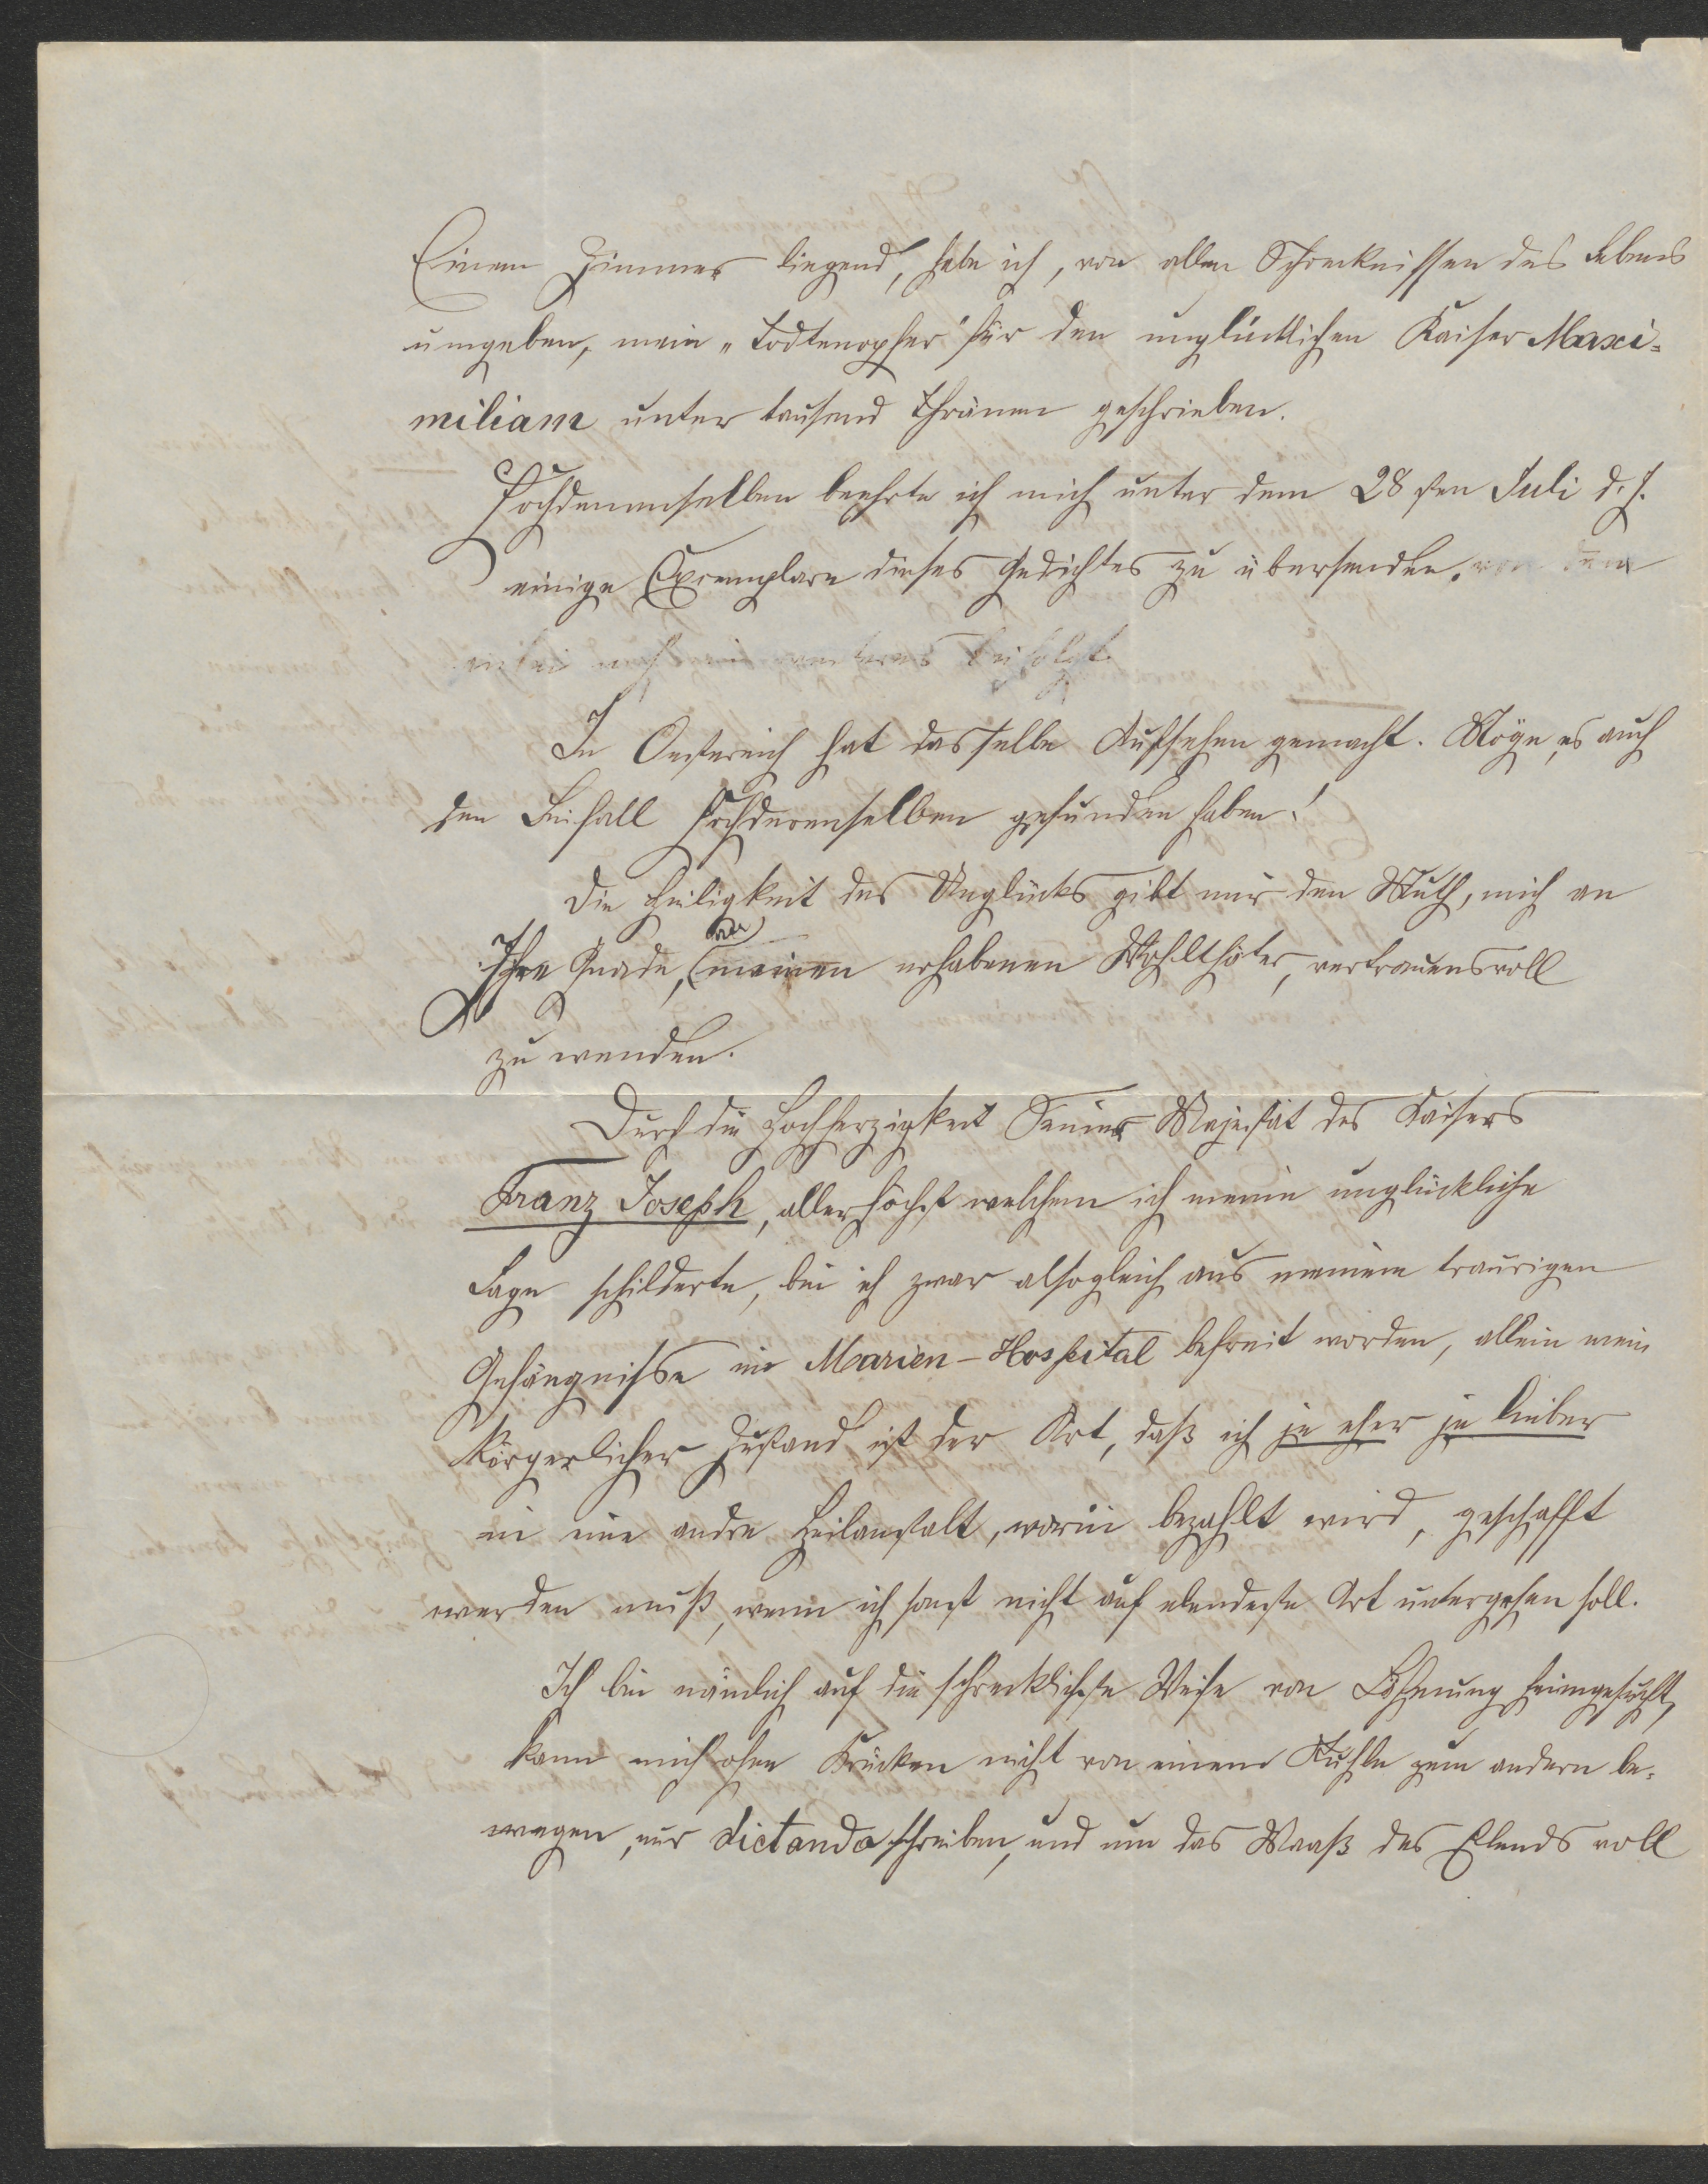 Einem Zimmer liegend, habe ich, von allen Schrecknissen des Lebens
umgeben, mein „Todtenopfer" für den unglücklichen Kaiser Maxi-
milian unter tausend Thränen geschrieben.
Hochdemenselben beehrte ich mich unter dem 28sten Juli d. J.
einige Exemplare dieses Gedichtes zu übersenden, von dem
anbei noch ein weiteres beifolgt.
In Oesterreich hat dasselbe Aufsehen gemacht. Möge es auch
den Beifall Hochderenselben gefunden haben!
Die Heiligkeit des Unglücks gibt mir den Muth, mich an
Ihre Gnade, (an) meinen erhabenen Wohlthäter, vertrauensvoll
zu wenden.
Durch die Hochherzigkeit Seiner Majestät des Kaisers
Franz Joseph, allerhöchst welchem ich meine unglückliche
Lage schilderte, bin ich zwar alsogleich aus meinem traurigen
Gefängnisse im Marien-Hospital befreit worden, allein mein
körperlicher Zustand ist der Art, daß ich je eher je lieber
in eine andre Heilanstalt, worin bezahlt wird, geschafft
werden muß, wenn ich sonst nicht auf elendeste Art untergehen soll.
Ich bin nämlich auf die schrecklichste Weise von Lähmung heimgesucht,
kann mich ohne Krücken nicht von einem Stuhle zum andern be-
wegen, nur dictando schreiben, und um das Maaß des Elends voll